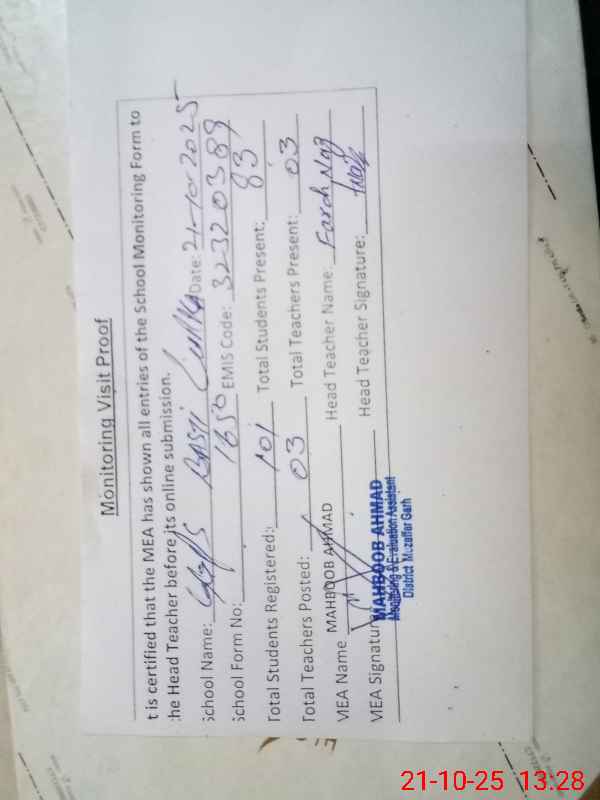 Monitoring Visit Proof
t is certified that the MEA has shown all entries of the School Monitoring Form to
the Head Teacher before its online submission.
School Name: BASTI Date: 21-10-2025
School Form No: 1650 EMIS Code: 32320389
Total Students Registered: 101 Total Students Present: 83
Total Teachers Posted: 03 Total Teachers Present: 03
MEA Name MAHBOOB AHMAD Head Teacher Name: Farah Naz
MEA Signature Head Teacher Signature:
MAHBOOB AHMAD
Monitoring & Evaluation Assistant
District Muzaffar Garh
21-10-25 13:28